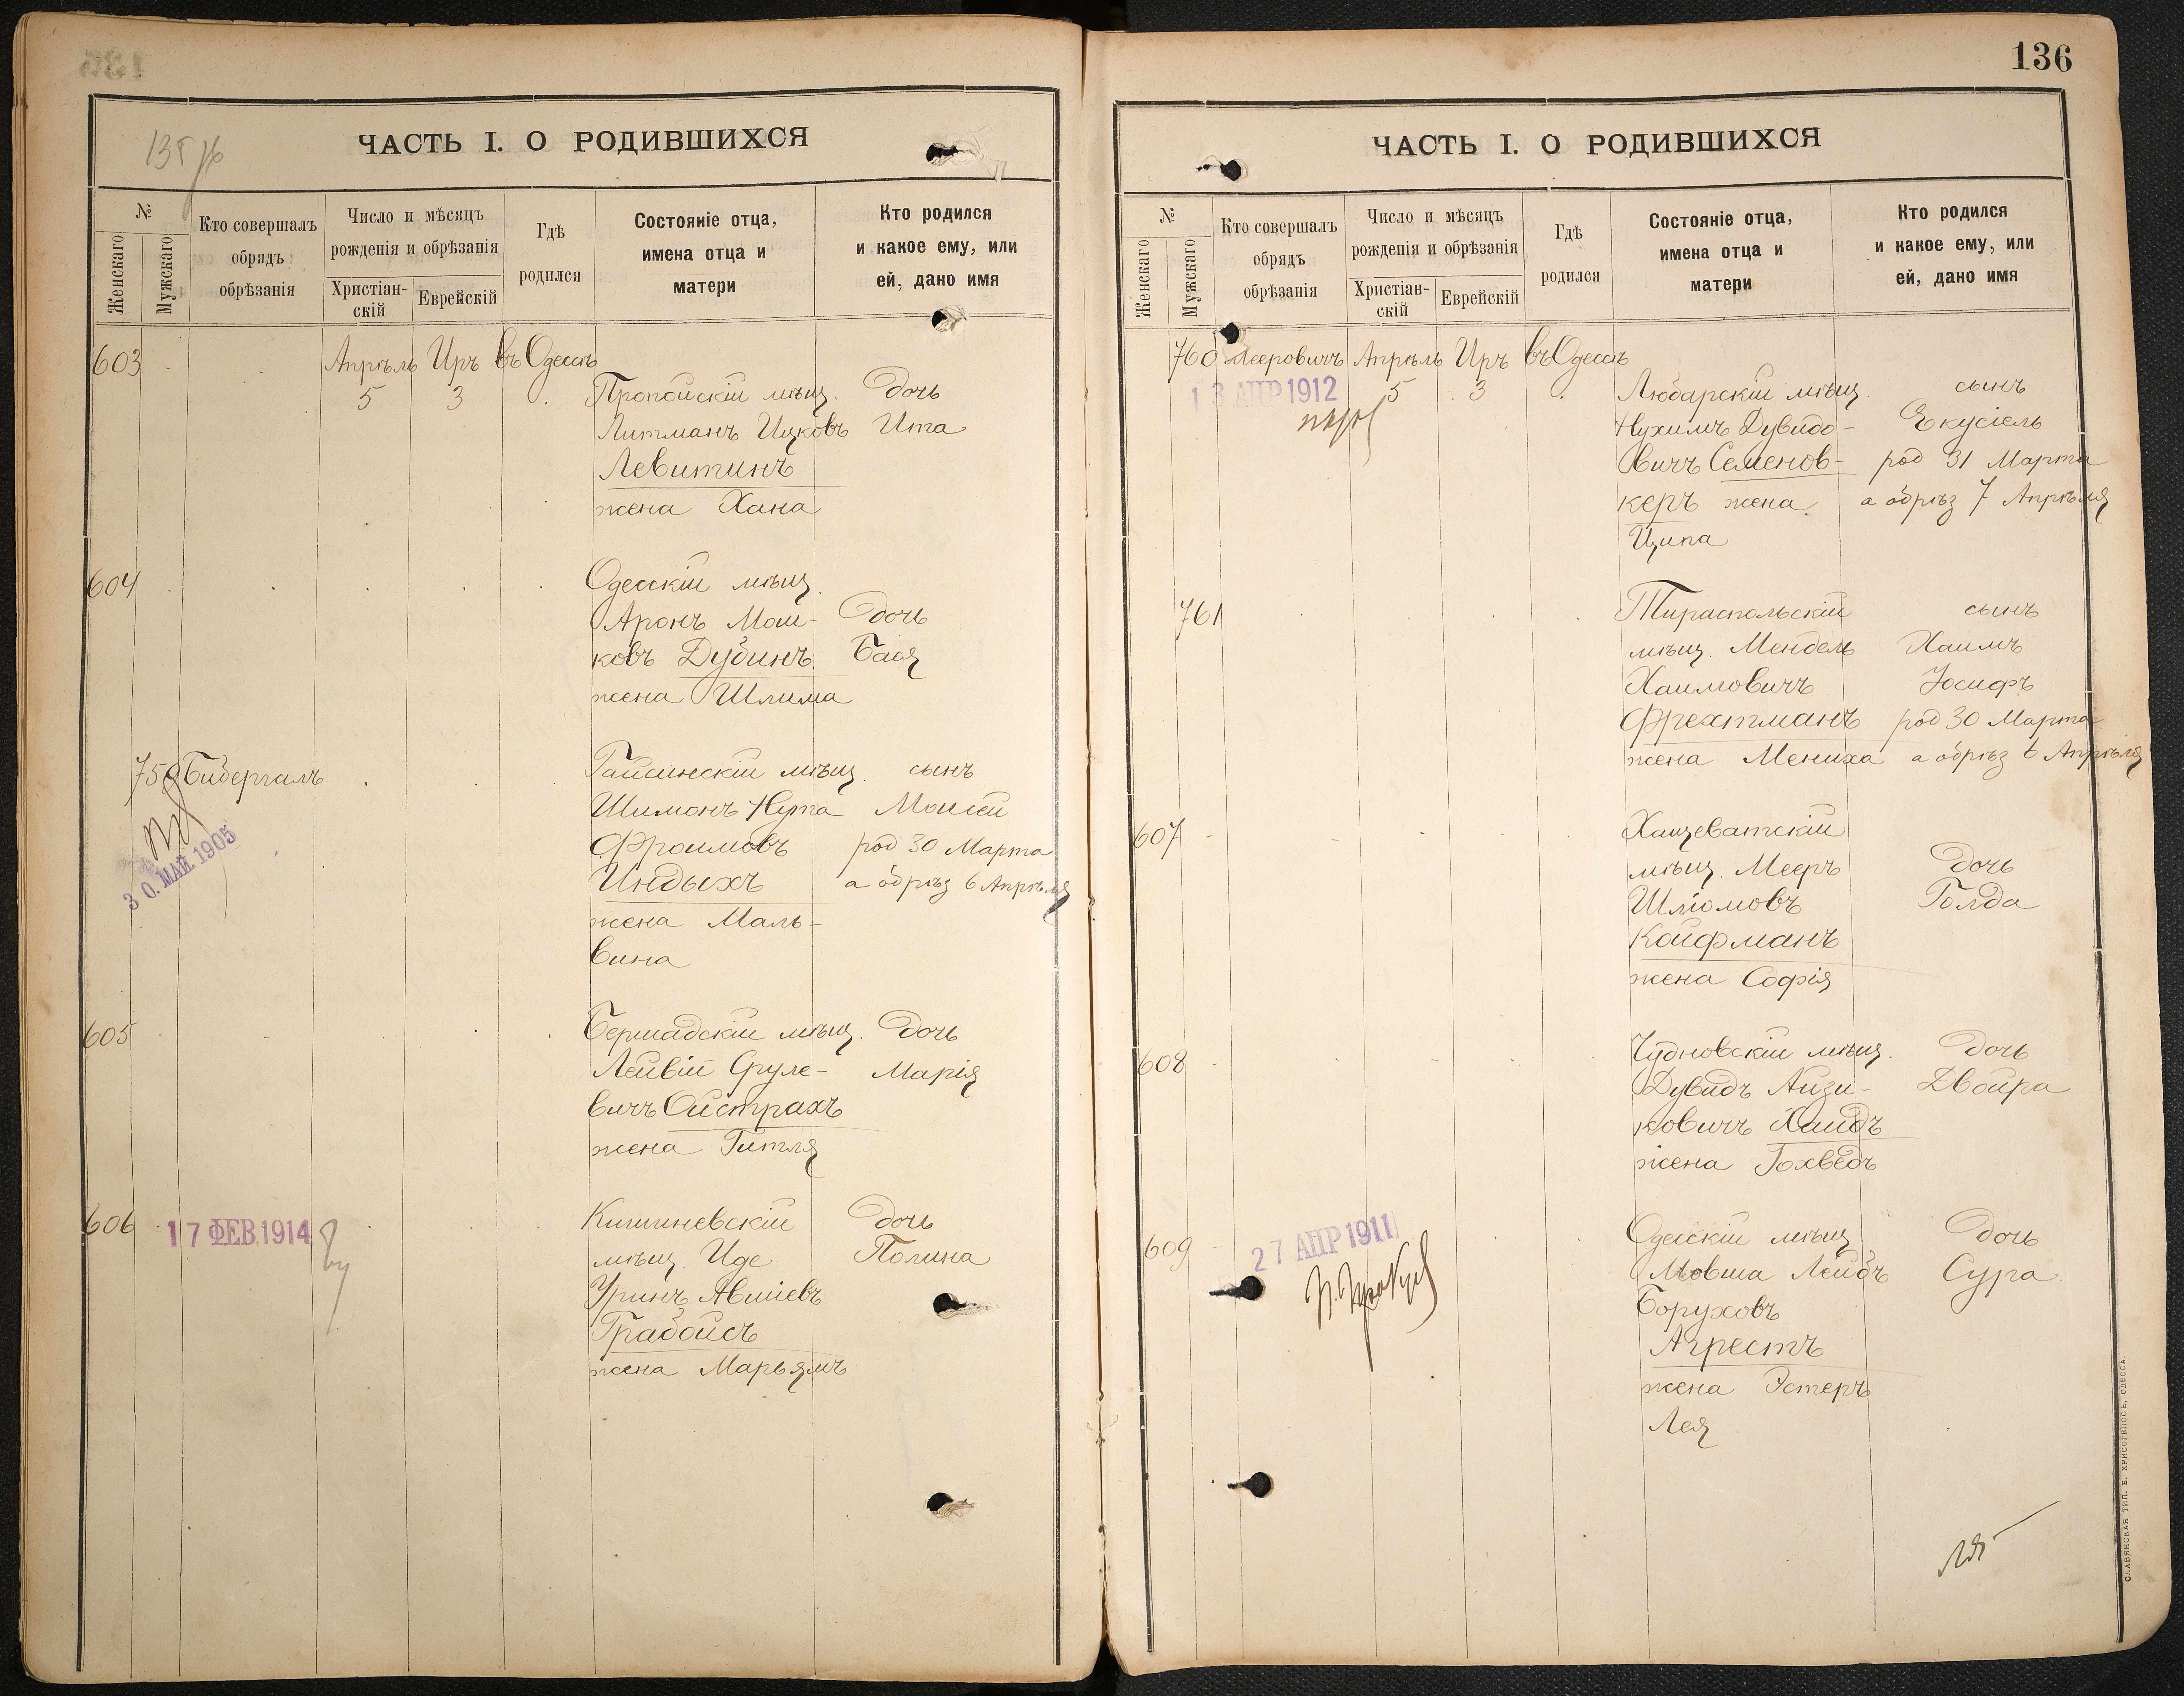 ЧАСТЬ I. О РОДИВШИХСЯ
№
Женскаго
Мужскаго
Кто совершалъ
обрядъ
обрѣзанія
Число и мѣсяцъ
рожденія и обрѣзанія
Христіан-
скій
Еврейскій
Гдѣ
родился
Состояніе отца,
имена отца и
матери
Кто родился
и какое ему, или
ей, дано имя
603 Апрѣль Иръ въ Одессѣ
5 3 Пропойскій мѣщ. дочь
Литманъ Ицковъ Ита
Левитинъ
жена Хана
604 Одесскій мѣщ.
Аронъ Мош- дочь
ковъ Дубинъ Бася
жена Шлима
759 Бибергалъ Гайсинскій мѣщ. сынъ
Шимонъ Нута Моисей
Фроимовъ род 30 Марта
Индыхъ а обрѣз 6 Апрѣля
30. МАЙ 1905
жена Маль-
вина
605 Бершадскій мѣщ. дочь
Лейвій Сруле- Марія
вичъ Ойстрахъ
жена Гитля
606 17 ФЕВ. 1914 Кишиневскій дочь
мѣщ. Иде Полина
Уринъ Авшіевъ
Грабойсъ
жена Марьямъ
136
ЧАСТЬ I. О РОДИВШИХСЯ
№
Женскаго
Мужскаго
Кто совершалъ
обрядъ
обрѣзанія
Число и мѣсяцъ
рожденія и обрѣзанія
Христіан-
скій
Еврейскій
Гдѣ
родился
Состояніе отца,
имена отца и
матери
Кто родился
и какое ему, или
ей, дано имя
760 Мееровичъ Апрѣль Иръ въ Одессѣ
13 АПР 1912 5 3 Любарскій мѣщ. сынъ
Нухимъ Дувидо- Екусіель
вичъ Семенов- род 31 Марта
керъ жена а обрѣз 7 Апрѣля
Ципа
761 Тираспольскій сынъ
мѣщ. Мендель Хаимъ
Хаимовичъ Іосифъ
Фрехтманъ род 30 Марта
жена Мениха а обрѣз 6 Апрѣля
607 Хащеватскій
мѣщ. Мееръ дочь
Шліомовъ Голда
Койфманъ
жена Софія
608 Чудновскій мѣщ. дочь
Дувидъ Айзи- Двойра
ковичъ Хаидъ
жена Іохведъ
609 27 АПР 1911 Одесскій мѣщ. дочь
Мовша Лейбъ Сура
Боруховъ
Агрестъ
жена Эстеръ
Лея
СЛАВЯНСКАЯ ТИП. Е. ХРИСОГЕЛОСЪ, ОДЕССА.